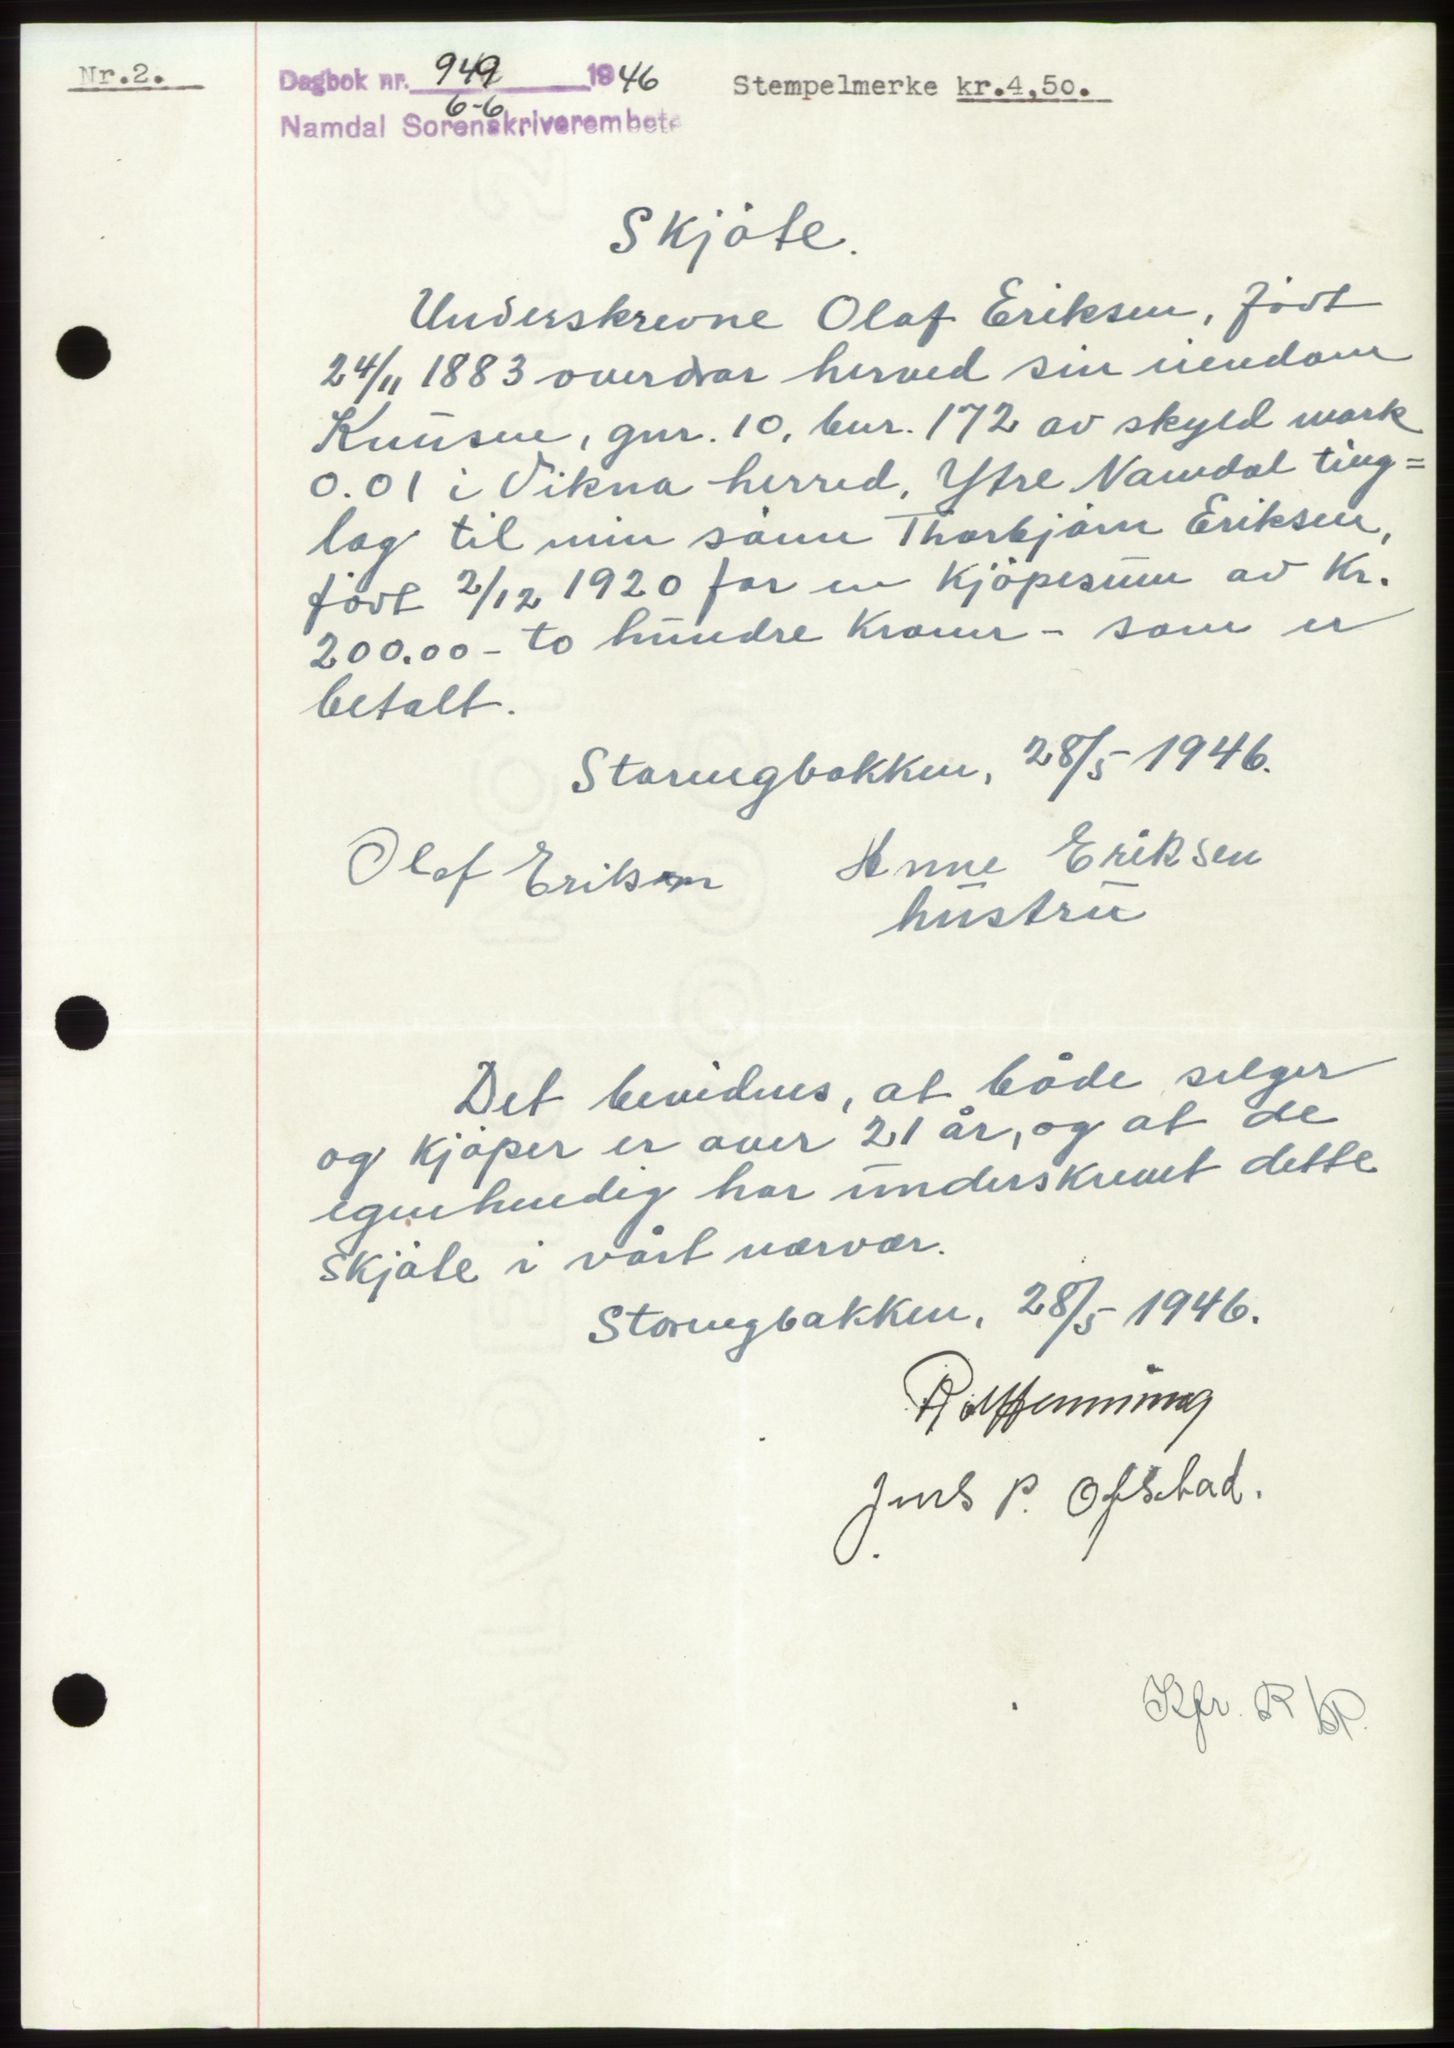 Nr.2.
Dagbok nr. 949 1946
6-6
Namdal Sorenskriverembete
Stempelmerke kr.4,50.
Skjöte.
Underskrevne Olaf Eriksen, född
24/11 1883 overdrar herved sin eiendom
gnr. 10, bnr. 172 av skyld mark
0.01 i Vikna herred, Ytre Namdal ting=
lag til min sönn Thorbjörn Eriksen,
född 2/12 1920 for en kjöpesum av kr.
200.00 - to hundre kroner - som er
betalt.
Storengbakken, 28/5 1946.
Olaf Eriksen Anne Eriksen
hustru
Det bevidnes, at både selger
og kjöper er over 21 år, og at de
egenhendig har underskrevet dette
skjöte i vårt nærvær.
Storengbakken, 28/5 1946.
Rolf Henning
Jens P. Ofstad.
Kfr.